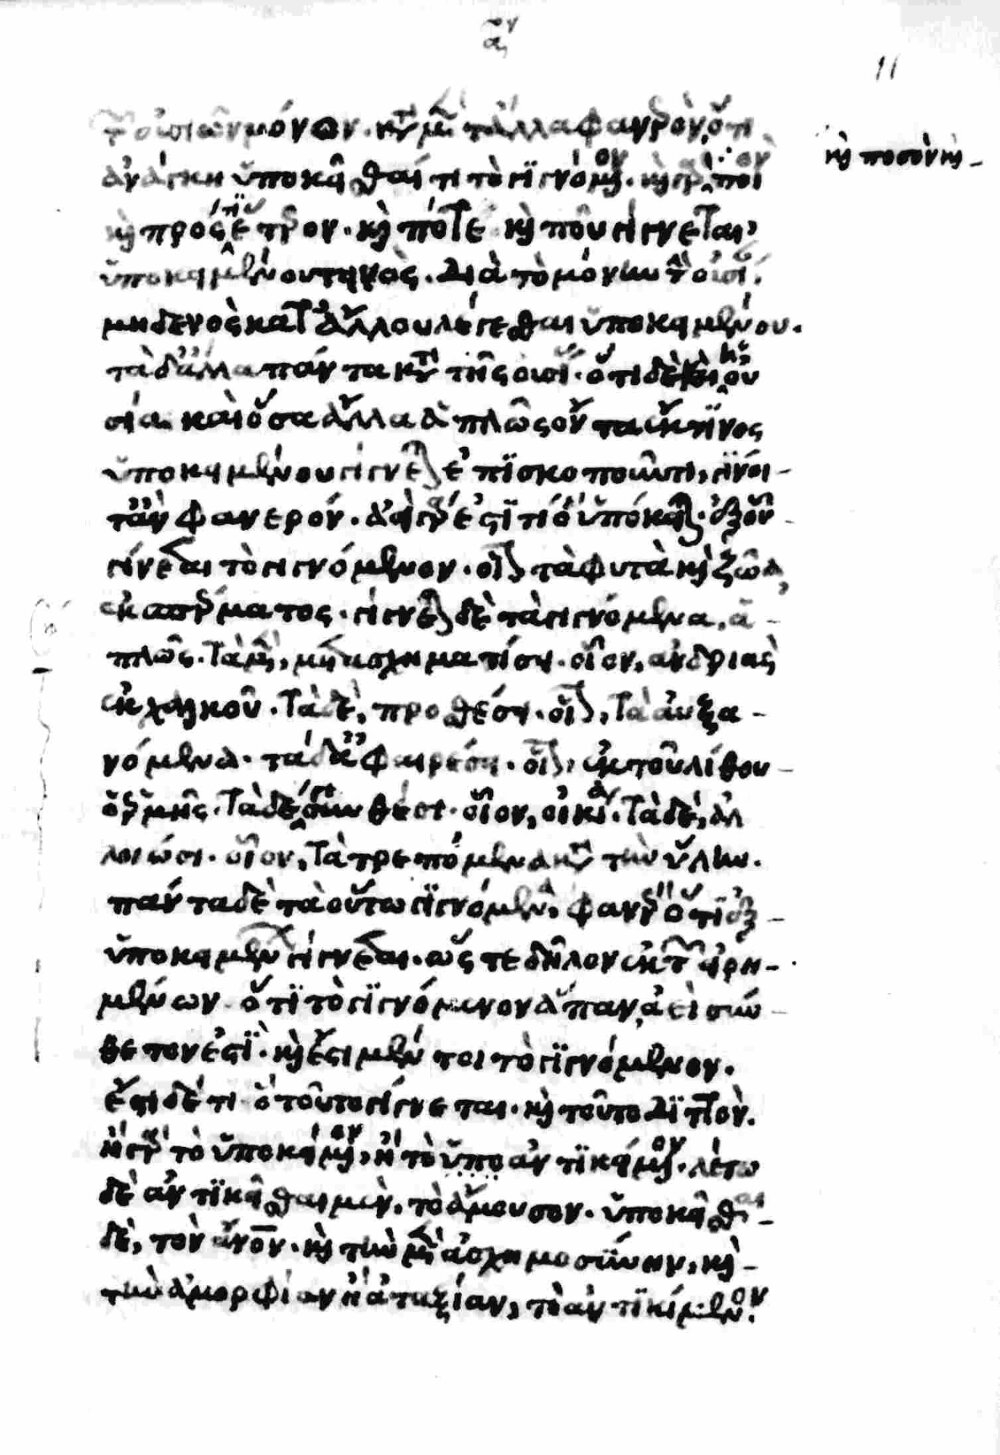 α ον
11
τῶν οὐσιῶν μόνων. κατὰ μὲν τἄλλα φανερὸν, ὅτι
καὶ ποσὸν καὶ
ἀνάγκη ὑποκεῖσθαί τι τὸ γιγνόμενον. καὶ γὰρ ποιὸν
καὶ πρός τι ἕτερον. καὶ πότε καὶ ποῦ γίγνεται,
ὑποκειμένου τινὸς. διὰ τὸ μόνην τὴν οὐσίαν
μηδενὸς κατ' ἄλλου λέγεσθαι ὑποκειμένου.
τὰ δ' ἄλλα πάντα κατὰ τῆς οὐσίας. ὅτι δὲ καὶ αἱ οὐ
σίαι καὶ ὅσα ἄλλα ἁπλῶς ὄντα ἔκ τινος
ὑποκειμένου γίγνεται ἐπισκοποῦντι, γίνοι-
τ' ἂν φανερόν. ἀεὶ γάρ ἐστί τι ὃ ὑπόκειται. ἐξ οὗ
γίνεται τὸ γιγνόμενον. οἷον τὰ φυτὰ καὶ ζῶα
ἐκ σπέρματος. γίγνεται δὲ τὰ γιγνόμενα, ἁ-
πλῶς. τὰ μὲν, μετασχηματίσει. οἷον, ἀνδριὰς
ἐκ χαλκοῦ. τὰ δὲ, προσθέσει. οἷον, τὰ αὐξα-
νόμενα. τὰ δ' ἀφαιρέσει. οἷον, ἐκ τοῦ λίθου
ὁ ἑρμῆς. τὰ δὲ συνθέσει. οἷον, οἰκία. τὰ δὲ, ἀλ
λοιώσει. οἷον, τὰ τρεπόμενα κατὰ τὴν ὕλην.
πάντα δὲ τὰ οὕτω γιγνόμενα, φανερὸν ὅτι ἐξ
ὑποκειμένων γίγνεται. ὥστε δῆλον ἐκ τῶν εἰρη-
μένων. ὅτι τὸ γιγνόμενον ἅπαν, ἀεὶ σύν
θετόν ἐστι. καὶ ἔστι μέν τοι τὸ γιγνόμενον.
ἔστι δέ τι ὃ τοῦτο γίγνεται. καὶ τοῦτο διττόν.
ἢ γὰρ τὸ ὑποκείμενον, ἢ τὸ ἀντικείμενον. λέγω
δὲ ἀντικεῖσθαι μὲν, τὸ ἄμουσον. ὑποκεῖσθαι
δὲ, τὸν ἄνον. καὶ τὴν μὲν ἀσχημοσύνην, καὶ
τὴν ἀμορφίαν ἢ ἀταξίαν, τὸ ἀντικείμενον.